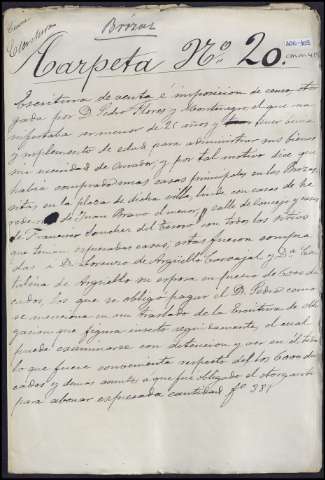 Brozas
Carpeta Nº 20.
Escritura de venta é imposicion de censo otor-
gada por D. Pedro Flores y el que ma-
nifestaba ser menor de 25 años y tener
y suplemento de edad para administrar sus bienes
sin necesidad de Curador, y por tal motivo dice que
habia comprado unas casas principales en las Brozas,
sitas en la plaza de dicha villa, linde con casas de he-
rederos de Juan Bravo el menor, y calle de Concejo y casas
de Francisco Sanchez del Tesoro con todos los
que tenian espresadas casas, estas fueron compra-
das á D. Lorenzo de Argüello Carvajal y Dª Ca-
talina de Argüello su esposa en precio de
cados, los que se obligó pagar el D. Pedro como
se menciona en un traslado de la Escritura de obli-
gacion que figura inserto seguidamente, el cual
puede examinarse con detencion y ver en él todo
lo que fuese conveniente respecto del los
cados y demas á que fué obligado el otorgante
para abonar espresada cantidad fº 381